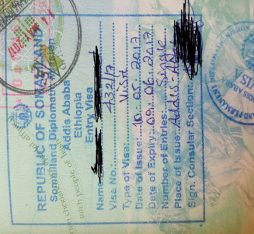 REPUBLIC OF SOMALILAND
Somaliland Diplomatic Mission
Addis Ababa
Ethiopia
Entry Visa
Name:
Visa No: 232/17
Type of Visa: Visit
Date of Issue: 10.05.2017
Date of Expiry: 09.06.2017
Number of Entries: Single
Place of Issue: Addis-Ababa
Sign. Consular Section: